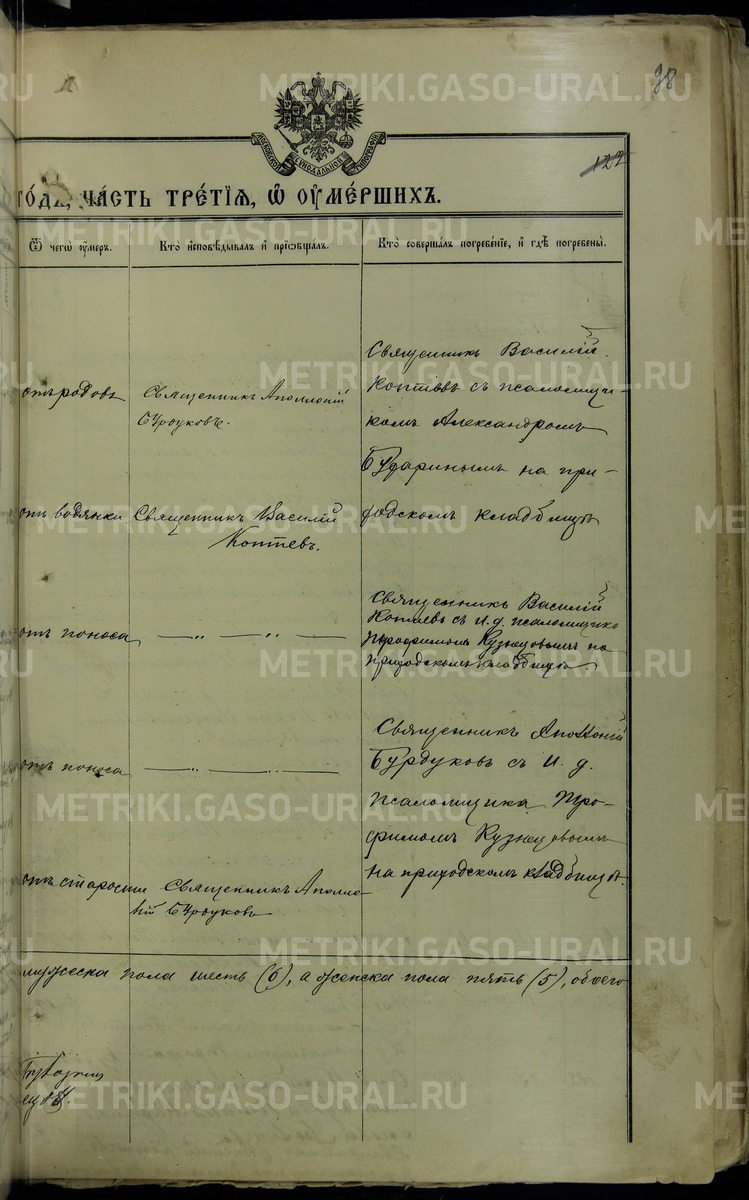 98
122
МОСКОВСКОЙ СѴНОДАЛЬНОЙ ТИПОГРАФІИ
года, часть третїѧ, ѡ оумершихъ.
Ѿ чегѡ оумеръ.
Кто исповѣдывалъ и прїобщалъ.
Кто совершалъ погребенїе, и гдѣ погребены.
отъ родовъ
Священникъ Аполлоній
Бурдуковъ.
Священникъ Василій
Коптевъ съ псаломщи-
комъ Александромъ
Будариными на при-
ходскомъ кладбищѣ
отъ водянки
Священникъ Василій
Коптевъ.
отъ поноса
— „ — „ —
Священникъ Василій
Коптевъ съ И. д. псаломщика
Трофимомъ Кузнецовымъ на
приходскомъ кладбищѣ.
отъ поноса
— „ — „ —
Священникъ Аполлоній
Бурдуковъ съ И. д.
псаломщика Тро-
фимомъ Кузнецовымъ
на приходскомъ кладбищѣ.
отъ старости
Священникъ Аполло-
ній Бурдуковъ
мужеска пола шесть (6), а женска пола пять (5), обоего
METRIKI.GASO-URAL.RU